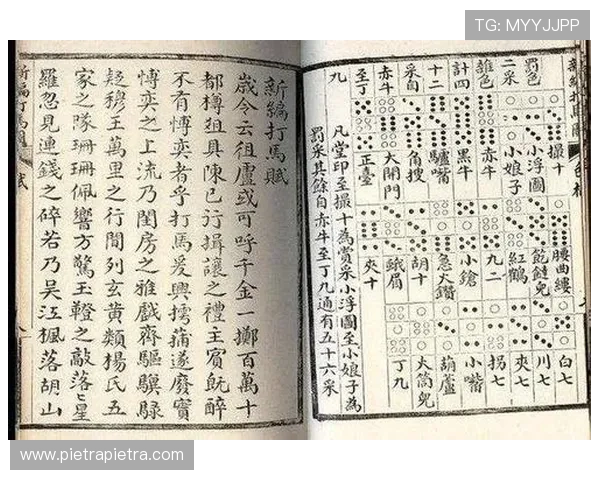 TG: MYYJJPP
新編打馬圖
罰色
二采
雜色
計四
十二
赤牛
至丁
九
撮十
小浮圖
小娘子
赤牛
黑牛
驢嘴
角搜
大開門
正臺
腰曲縷
紅鶴
九二
小鎗
急火鑽
胡十
蛾眉
夾十
白七
川七
夾七
拐七
小嘴
葫蘆
大筒兒
丁九
凡堂印至撮十為賞采小浮圖至小娘子為
罰采其餘自赤牛至丁九通有五十六采
新編打馬賦
歲今云徂盧或可呼千金一擲百萬十
都樽俎具陳已行揖讓之禮主賓旣醉
不有博奕者乎打馬爰興摴蒱遂廢實
博奕之上流乃閨房之雅戲齊驅驥騄
疑穆王萬里之行間列玄黃類楊氏五
家之隊珊珊佩響方驚玉鞚之敲落〻星
羅忽見連錢之碎若乃吳江楓落胡山
新編打馬圖 賦
www.pietrapietra.com